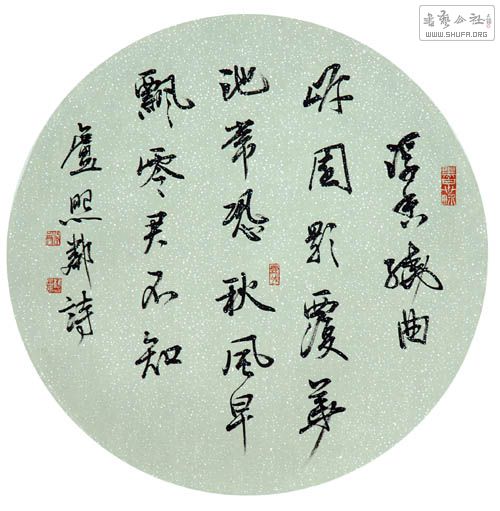 書藝公社
WWW.SHUFA.ORG
浮香繞曲
岸圓影覆華
池常恐秋風早
飄零君不知
盧照鄰詩